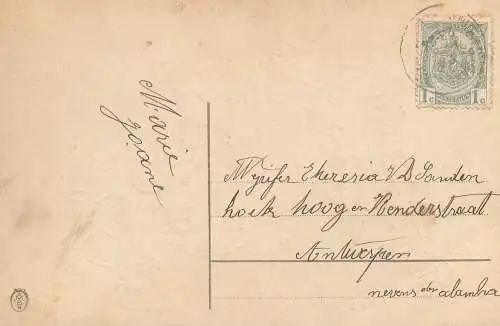 Marie
Joane
Mejufer Theresia V/D Sanden
hoek hoog en Kenderstraat
Antwerpen
nevens den alambra
1c 1c